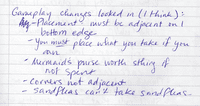 Gameplay changes locked in (I think):
- Placement - must be adjacent on 1
bottom edge
- You must place what you take if you
can
- Mermaids purse worth string if
not spent
- Corners not adjacent
- Sandfleas can't take sandfleas.